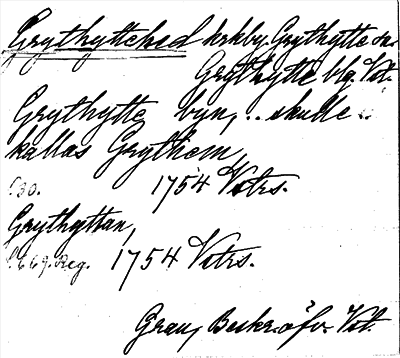 Grythyttehed krkby. Grythytte sn.
Grythytte blg. Vstl.
Grythytte byn, .. skulle ..
kallas Grythem,
s. 30. 1754 Vstrs.
Grythyttan,
s. 669. Reg. 1754 Vstrs.
Grau, Beskr. öfv. Vstl.